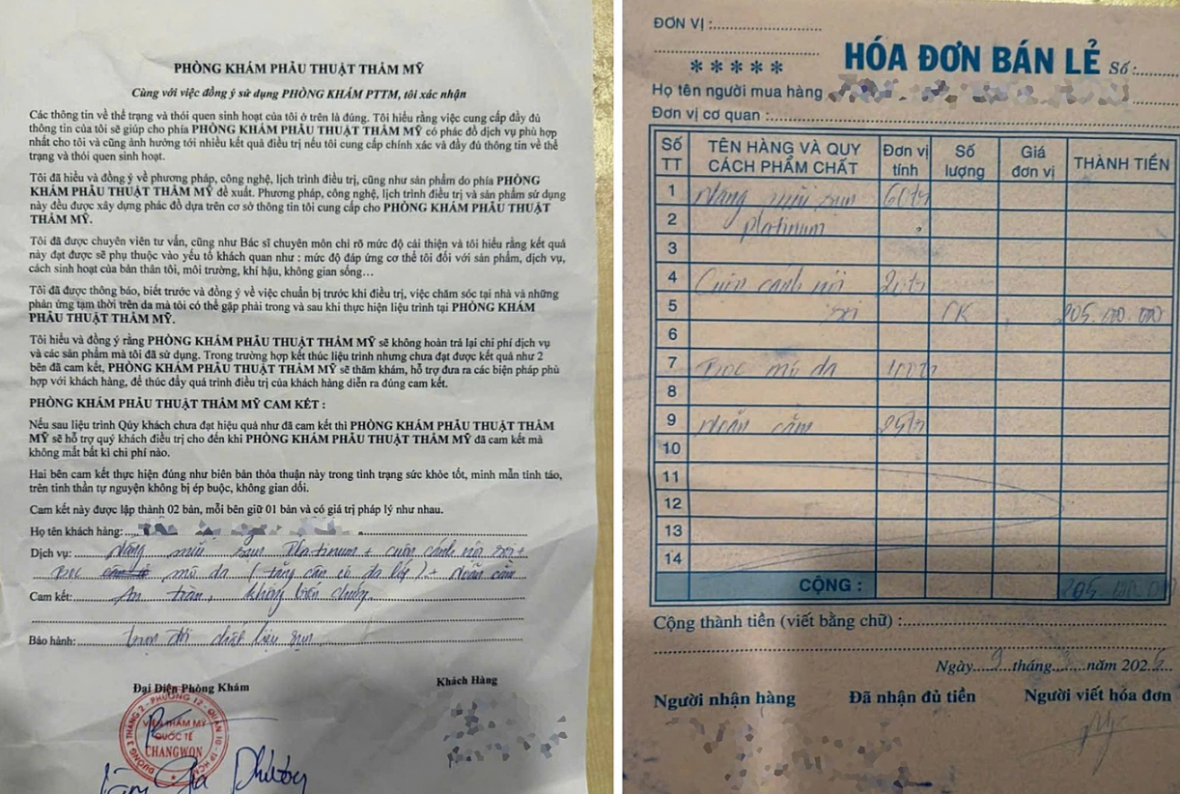 PHÒNG KHÁM PHẪU THUẬT THẨM MỸ
Cùng với việc đồng ý sử dụng PHÒNG KHÁM PTTM, tôi xác nhận
Các thông tin về thể trạng và thói quen sinh hoạt của tôi ở trên là đúng. Tôi hiểu rằng việc cung cấp đầy đủ
thông tin của tôi sẽ giúp cho phía PHÒNG KHÁM PHẪU THUẬT THẨM MỸ có phác đồ dịch vụ phù hợp
nhất cho tôi và cũng ảnh hưởng tới nhiều kết quả điều trị nếu tôi cung cấp chính xác và đầy đủ thông tin về thể
trạng và thói quen sinh hoạt.
Tôi đã hiểu và đồng ý về phương pháp, công nghệ, lịch trình điều trị, cũng như sản phẩm do phía PHÒNG
KHÁM PHẪU THUẬT THẨM MỸ đề xuất. Phương pháp, công nghệ, lịch trình điều trị và sản phẩm sử dụng
này đều được xây dựng phác đồ dựa trên cơ sở thông tin tôi cung cấp cho PHÒNG KHÁM PHẪU THUẬT
THẨM MỸ.
Tôi đã được chuyên viên tư vấn, cũng như Bác sĩ chuyên môn chỉ rõ mức độ cải thiện và tôi hiểu rằng kết quả
này đạt được sẽ phụ thuộc vào yếu tố khách quan như : mức độ đáp ứng cơ thể tôi đối với sản phẩm, dịch vụ,
cách sinh hoạt của bản thân tôi, môi trường, khí hậu, không gian sống…
Tôi đã được thông báo, biết trước và đồng ý về việc chuẩn bị trước khi điều trị, việc chăm sóc tại nhà và những
phản ứng tạm thời trên da mà tôi có thể gặp phải trong và sau khi thực hiện liệu trình tại PHÒNG KHÁM
PHẪU THUẬT THẨM MỸ.
Tôi hiểu và đồng ý rằng PHÒNG KHÁM PHẪU THUẬT THẨM MỸ sẽ không hoàn trả lại chi phí dịch vụ
và các sản phẩm mà tôi đã sử dụng. Trong trường hợp kết thúc liệu trình nhưng chưa đạt được kết quả như 2
bên đã cam kết, PHÒNG KHÁM PHẪU THUẬT THẨM MỸ sẽ thăm khám, hỗ trợ đưa ra các biện pháp phù
hợp với khách hàng, để thúc đẩy quá trình điều trị của khách hàng diễn ra đúng cam kết.
PHÒNG KHÁM PHẪU THUẬT THẨM MỸ CAM KẾT :
Nếu sau liệu trình Qúy khách chưa đạt hiệu quả như đã cam kết thì PHÒNG KHÁM PHẪU THUẬT THẨM
MỸ sẽ hỗ trợ quý khách điều trị cho đến khi PHÒNG KHÁM PHẪU THUẬT THẨM MỸ đã cam kết mà
không mất bất kì chi phí nào.
Hai bên cam kết thực hiện đúng như biên bản thỏa thuận này trong tình trạng sức khỏe tốt, minh mẫn tỉnh táo,
trên tinh thần tự nguyện không bị ép buộc, không gian dối.
Cam kết này được lập thành 02 bản, mỗi bên giữ 01 bản và có giá trị pháp lý như nhau.
Họ tên khách hàng:
Dịch vụ: Nâng mũi sụn Platinum + cuộn cánh nội soi +
Bọc mô da +
Cam kết: An toàn, không biến chứng.
Bảo hành: trọn đời chất liệu sụn
Đại Diện Phòng Khám
Khách Hàng
ĐƯỜNG 3 THÁNG 2 - PHƯỜNG 12 - QUẬN 10 - TP HCM
VIỆN THẨM MỸ
QUỐC TẾ
CHANGWON
ĐƠN VỊ :
*****
HÓA ĐƠN BÁN LẺ Số:
Họ tên người mua hàng
Đơn vị cơ quan :
Số TT TÊN HÀNG VÀ QUY CÁCH PHẨM CHẤT Đơn vị tính Số lượng Giá đơn vị THÀNH TIỀN
1 Nâng mũi sụn 60tr
2 platinum
3
4 Cuộn cánh nội
5 soi CK 205.000.000
6
7 Bọc mô da
8
9 Nhấn cằm 25tr
10
11
12
13
14
CỘNG : 205.000.000
Cộng thành tiền (viết bằng chữ) :
Ngày 9 tháng năm 202
Người nhận hàng
Đã nhận đủ tiền
Người viết hóa đơn